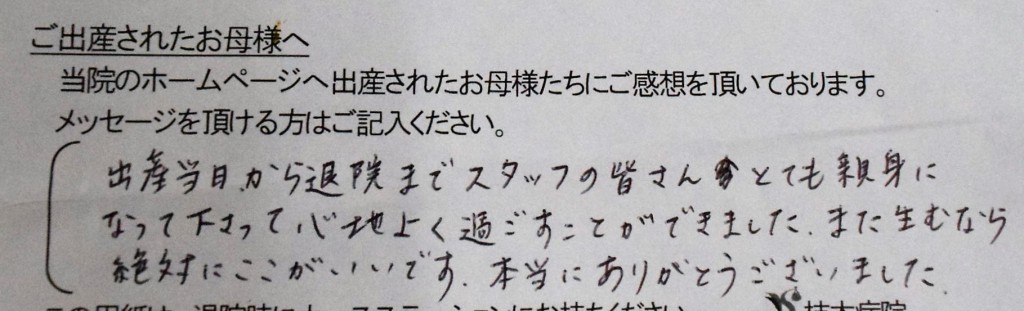 ご出産されたお母様へ
当院のホームページへ出産されたお母様たちにご感想を頂いております。
メッセージを頂ける方はご記入ください。
出産当日から退院までスタッフの皆さんとても親身に
なって下さって心地よく過ごすことができました.また生むなら
絶対にここがいいです.本当にありがとうございました.
この用紙は、退院時にナースステーションにお持ちください